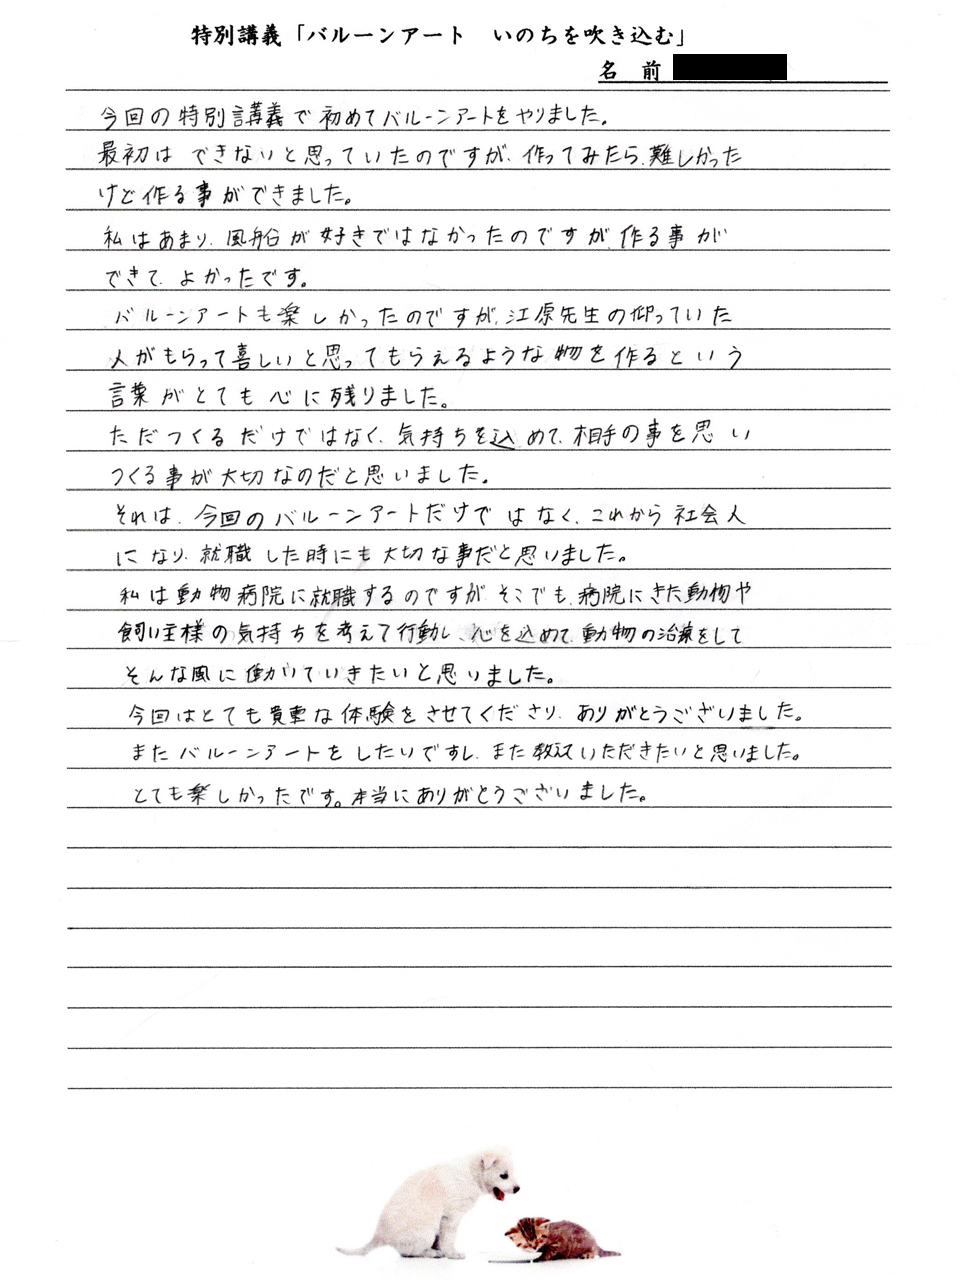 特別講義「バルーンアート　いのちを吹き込む」
名　前
今回の特別講義で初めてバルーンアートをやりました。
最初はできないと思っていたのですが、作ってみたら、難しかった
けど作る事ができました。
私はあまり、風船が好きではなかったのですが、作る事が
できて、よかったです。
バルーンアートも楽しかったのですが、江原先生の仰っていた
人がもらって喜しいと思ってもらえるような物を作るという
言葉がとても心に残りました。
ただつくるだけではなく、気持ちを込めて、相手の事を思い
つくる事が大切なのだと思いました。
それは、今回のバルーンアートだけではなく、これから社会人
になり、就職した時にも大切な事だと思いました。
私は動物病院に就職するのですが、そこでも、病院にきた動物や
飼い主様の気持ちを考えて行動し、心を込めて、動物の治療をして
そんな風に働いていきたいと思いました。
今回はとても貴重な体験をさせてくださり、ありがとうございました。
またバルーンアートをしたいですし、また教えていただきたいと思いました。
とても楽しかったです。本当にありがとうございました。